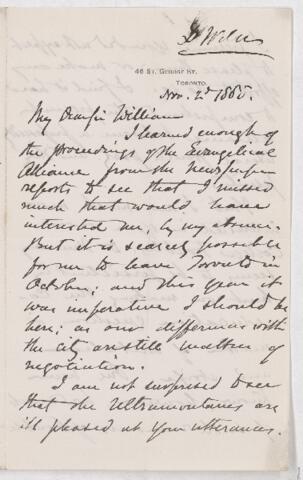 D Wilson
46 St. George St.
Toronto.
Nov. 2d 1888.
My Dear Sir William
I learned enough of
the proceedings of the Evangelical
Alliance from the newspaper
reports to see that I missed
much that would have
interested me, by my absence.
But it is scarcely possible
for me to leave Toronto in
October; and this year it
was imperative I should be
here; as our differences with
the city are still matters of
negotiation.
I am not surprised to see
that the Ultramontanes are
ill pleased at your utterances.